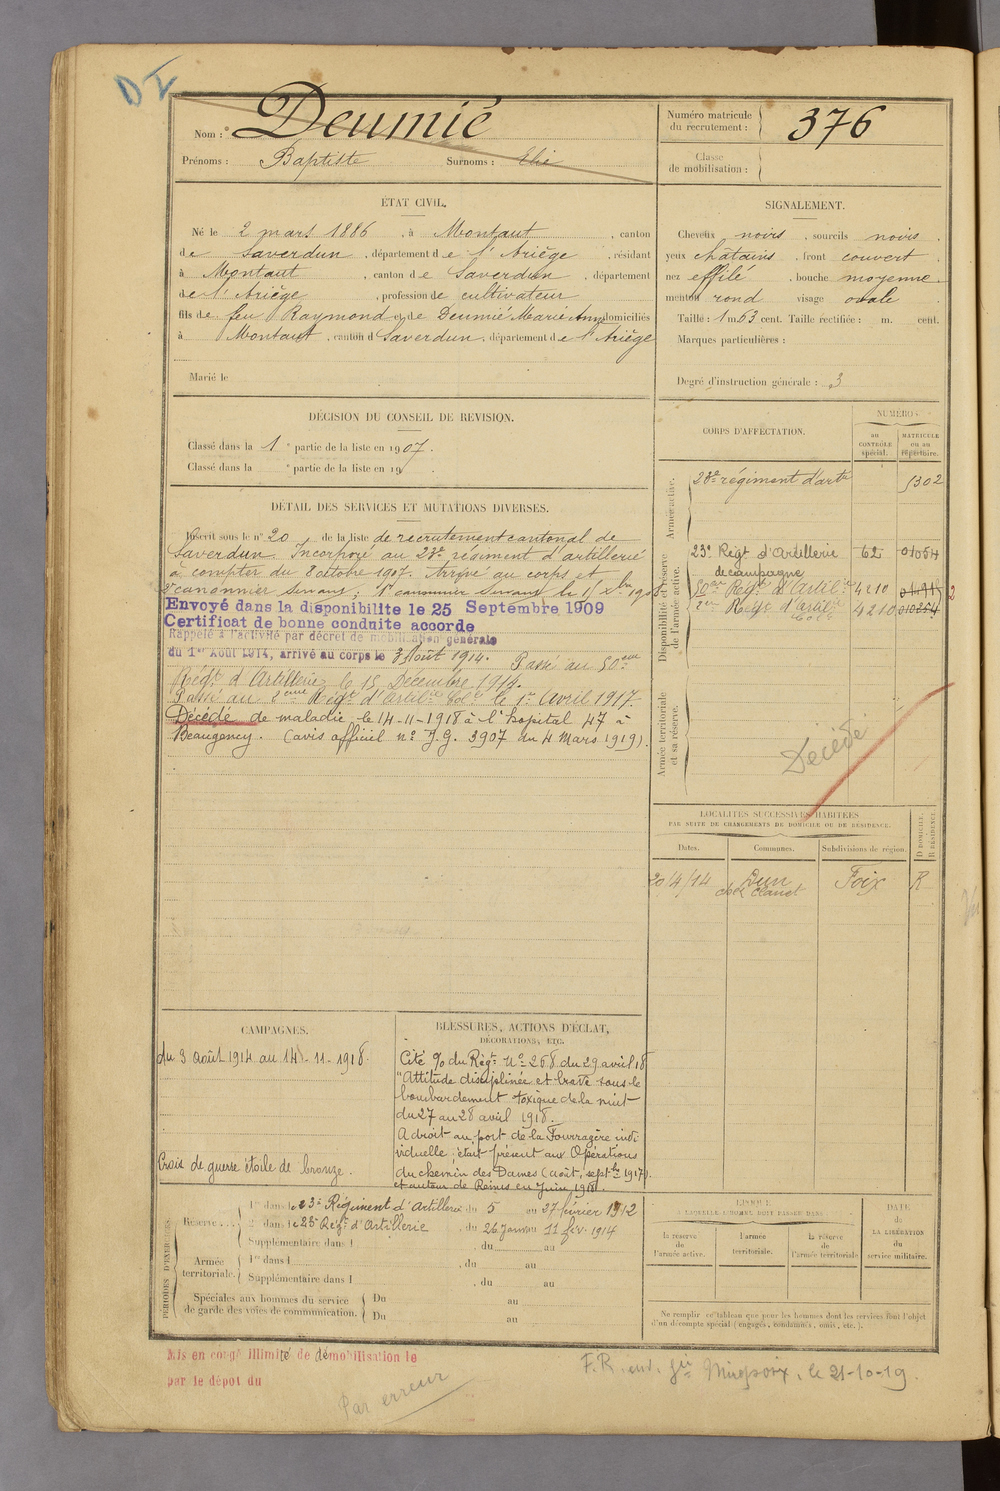 DI
Nom : Deumié
Prénoms : Baptiste Surnoms : Elie
Numéro matricule du recrutement : 376
Classe de mobilisation :
ÉTAT CIVIL.
Né le 2 mars 1886, à Montaut, canton
de Saverdun, département de l'Ariège, résidant
à Montaut, canton de Saverdun, département
de l'Ariège, profession de cultivateur
fils de feu Raymond et de Deumié Marie Anne domiciliés
à Montaut, canton d Saverdun, département de l'Ariège
Marié le
SIGNALEMENT.
Cheveux noirs, sourcils noirs.
yeux châtains, front couvert
nez effilé, bouche moyenne.
menton rond visage ovale.
Taille : 1 m 63 cent. Taille rectifiée : m. cent.
Marques particulières :
Degré d'instruction générale : 3
DÉCISION DU CONSEIL DE REVISION.
Classé dans la 1e partie de la liste en 1907.
Classé dans la e partie de la liste en 19
CORPS D'AFFECTATION.
NUMÉROS
au CONTRÔLE spécial.
MATRICULE ou au répertoire.
Armée active.
23e régiment d'arte 5302
Disponibilité et réserve de l'armée active.
23e Regt d'Artillerie 62 01054
de campagne
50ème Regt d'Artilie 4210
2ème Regt d'Artilie Colle 4210 010254
Armée territoriale et sa réserve.
Décédé
DÉTAIL DES SERVICES ET MUTATIONS DIVERSES.
Inscrit sous le n° 20 de la liste de recrutement cantonal de
Saverdun. Incorporé au 23e régiment d'artillerie
à compter du 8 octobre 1907. Arrivé au corps et
2e canonnier servant; 1er canonnier servant le 15 Xbre 1908
Envoyé dans la disponibilite le 25 Septembre 1909
Certificat de bonne conduite accorde
Rappelé à l'activité par décret de mobilisation générale
du 1er Août 1914, arrivé au corps le 3 Août 1914. Passé au 50ème
Régt d'Artillerie le 15 Décembre 1914.
Passé au 2ème Regt d'Artilie Colle le 1er Avril 1917.
Décédé de maladie, le 14-11-1918 à l'hopital 47 à
Beaugency. (avis officiel n° J.G. 3907 du 4 Mars 1919).
LOCALITÉS SUCCESSIVES HABITÉES
PAR SUITE DE CHANGEMENTS DE DOMICILE OU DE RÉSIDENCE.
Dates. Communes. Subdivisions de région. D DOMICILE. R RÉSIDENCE.
20/4/14 Dun Foix R
chez Clanet
CAMPAGNES.
du 3 Août 1914 au 14-11-1918.
Croix de guerre étoile de bronze.
BLESSURES, ACTIONS D'ÉCLAT,
DÉCORATIONS, ETC.
Cité % du Régt N° 268 du 29 avril 18
"Attitude disciplinée et brave sous le
bombardement toxique de la nuit
du 27 au 28 avril 1918.
A droit au port de la Fourragère indi
viduelle; était présent aux Opérations
du chemin des Dames (Août, septbre 1917).
et autour de Reims en Juin 1918.
PÉRIODES D'EXERCICES
Réserve... 1re dans le 23e Régiment d'Artillerie du 5 au 27 février 1912
2e dans le 23e Regt d'Artillerie, du 26 Janv au 11 fév. 1914
Supplémentaire dans l , du au
Armée territoriale. 1re dans l , du au
Supplémentaire dans l , du au
Spéciales aux hommes du service de garde des voies de communication. Du au
Du au
ÉPOQUE
À LAQUELLE L'HOMME DOIT PASSER DANS
la réserve de l'armée active.
l'armée territoriale.
la réserve de l'armée territoriale
DATE de LA LIBÉRATION du service militaire.
Ne remplir ce tableau que pour les hommes dont les services font l'objet
d'un décompte spécial (engagés, condamnés, omis, etc.).
Mis en congé illimité de démobilisation le
par le dépot du
Par erreur
F.R. env. Mirepoix, le 21-10-19.